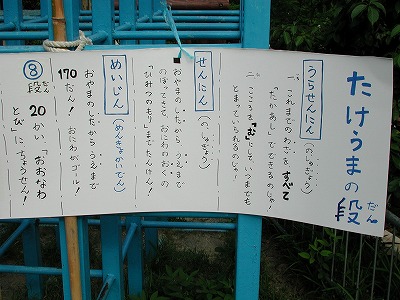 たけうまの段
だん
うらせんにん(のしゅぎょう)
一、これまでのわざを、すべて
「たかあし」でできるのじゃ!
二、こころを「む」にして、いつまでも
とまっていられるのじゃ!
せんにん(のしゅぎょう)
おやまのしたから、うえまで
のぼってきて、おにわのおくの
「ひみつのもり」までたんけん!
めいじん(めんきょかいでん)
おやまのしたから、うえまで
170だん!おにわがゴール!
⑧段 20かい「おおなわ
だん
とび」に、ちょうせん!